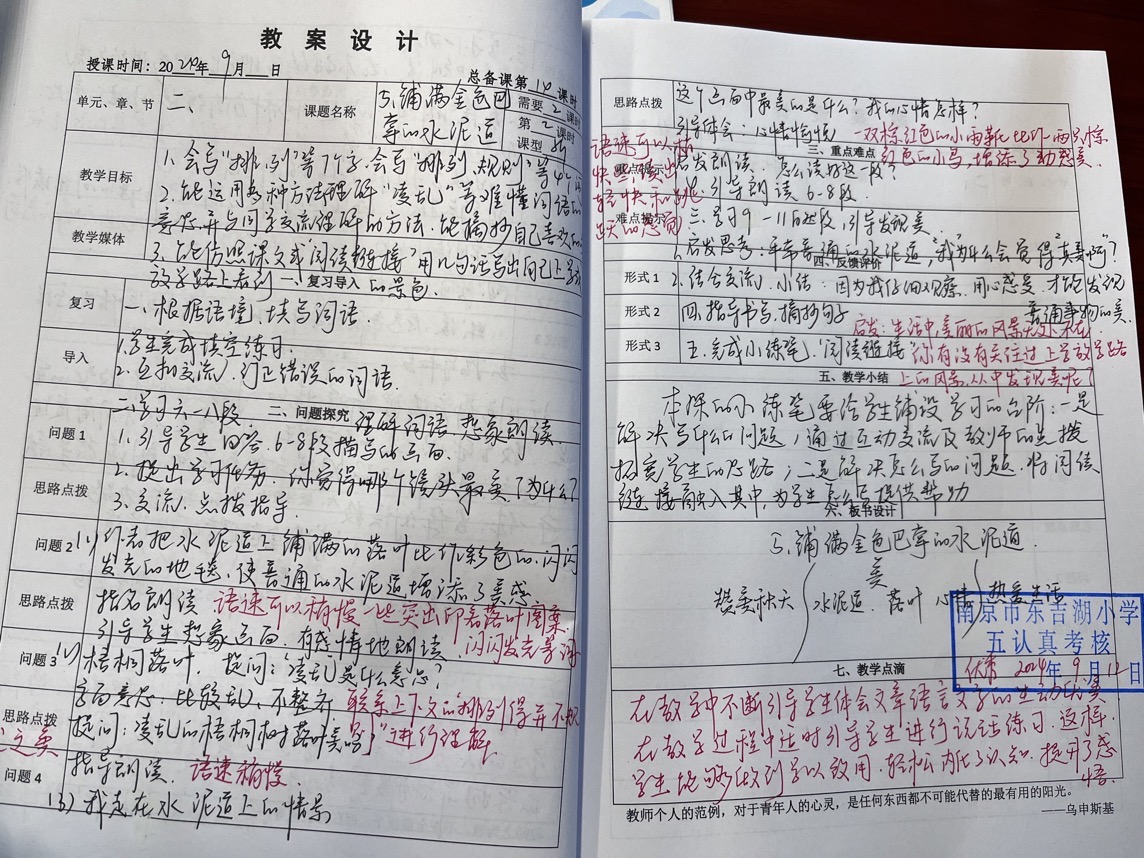 教案设计
授课时间：2024年9月__日
总备课第10课时
单元、章、节 二、 课题名称 5、铺满金色巴掌的水泥道 需要2课时 第2课时 课型
教学目标 1. 会写“排、列”等7个字.会写“排列、规则”等
2. 能运用多种方法理解“凌乱”等难懂词语的
意思,并与同学交流理解的方法.能摘抄自己喜欢的
教学媒体 3. 能仿照课文或“阅读链接”用几句话写出自己上学或
放学路上看到的景色.
一、复习导入
复习 一、根据语境,填写词语.
导入 1.学生完成填空练习.
2. 互相交流,订正错误的词语.
二、学习六-八段. 理解词语 想象朗读.
二、问题探究
问题1 1. 引导学生回答6-8段描写的画面.
思路点拨 2. 提出学习任务. 你觉得哪个镜头最美?为什么?
3. 交流.点拨指导.
问题2 (1) 作者把水泥道上铺满的落叶比作彩色的、闪闪
发光的地毯,使普通的水泥道增添了美感
思路点拨 指名朗读 语速可以稍慢一些突出印着落叶图案
引导学生想象画面,有感情地朗读. 闪闪发光等词
问题3 (2) 梧桐落叶, 提问:“凌乱”是什么意思?
字面意思:比较乱,不整齐 联系上下文的“排列得并不规
思路点拨 提问:凌乱的梧桐树落叶美吗? 则”进行理解
之美
指导朗读. 语速稍慢
问题4
(3) 我走在水泥道上的情景
思路点拨 这个画面中最美的是什么?我的心情怎样?
引导体会:心情愉悦 一双棕红色的小雨靴比作两只棕
三、重点难点 红色的小鸟,增添了动感美.
语速可以稍
快些读出
轻快和跳
跃的感觉
启发朗读. 怎么读好这一段?
引导朗读6-8段
难点提示 三、学习9-11自然段,引导发现美.
1.启发思考:平常普通的水泥道,“我”为什么会觉得“真美啊”?
四、反馈评价
形式1 2. 结合交流,小结:因为我仔细观察,用心感受,才能发现
普通事物的美.
形式2 四、指导书写,摘抄句子
启发:生活中,美丽的风景无处不在,
形式3 五、完成小练笔,“阅读链接” 你有没有关注过上学放学路
五、教学小结 上的风景,从中发现美呢?
本课的小练笔要给学生铺设学习的台阶:一是
解决写什么的问题,通过互动交流及教师的点拨
拓宽学生的思路;二是解决怎么写的问题.将阅读
链接融入其中,为学生怎么写提供帮助
六、板书设计
5、铺满金色巴掌的水泥道
美
赞美秋天 水泥道、落叶 心情 热爱生活
南京市东吉湖小学
五认真考核
2024年9月12日
七、教学点滴
在教学中不断引导学生体会文章语言文字的生动优美
在教学过程中适时引导学生进行说话练习.这样,
学生能够做到学以致用.轻松内化了认知.提升了感
悟.
教师个人的范例，对于青年人的心灵，是任何东西都不可能代替的最有用的阳光。
——乌申斯基